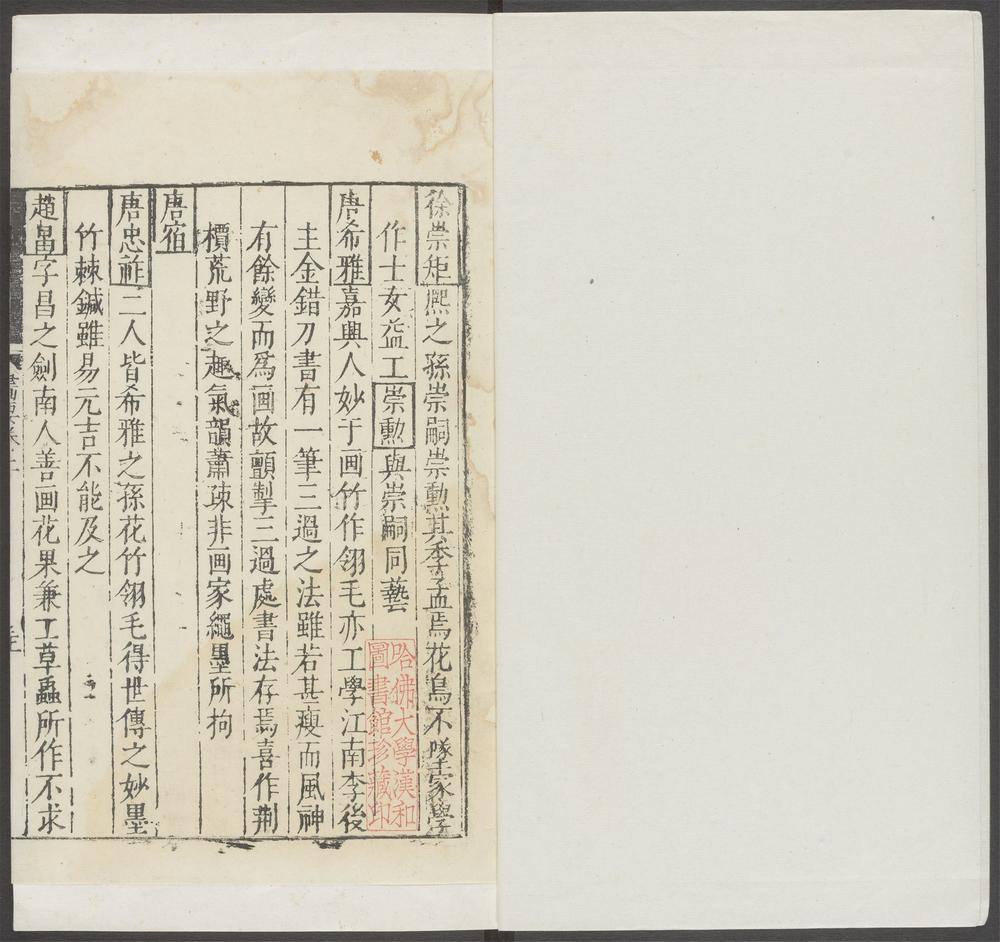 徐崇矩熈之孫崇嗣崇勲其季孟焉花鳥不墜家學
作士女益工崇勲與崇嗣同藝
唐希雅嘉興人妙于画竹作翎毛亦工學江南李後
主金錯刀書有一筆三過之法雖若甚瘦而風神
有餘變而爲画故顫掣三過處書法存焉喜作荆
檟荒野之趣氣韻蕭疎非画家繩墨所拘
唐宿
唐忠祚二人皆希雅之孫花竹翎毛得世傳之妙墨
竹棘鍼雖易元吉不能及之
趙昌字昌之劍南人善画花果兼工草蟲所作不求
哈佛大學漢和
圖書館珍藏印